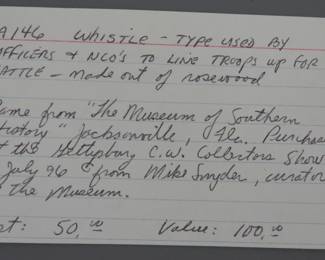 A146 WHISTLE - TYPE USED BY
OFFICERS & NCO'S TO LINE TROOPS UP FOR
BATTLE - made out of rosewood
Came from "The Museum of Southern
History" Jacksonville, Fla. Purchase
at the Gettysburg C.W. Collectors Show
July 96 from Mike Snyder, curator
of the Museum.
st: 50.00 Value: 100.00